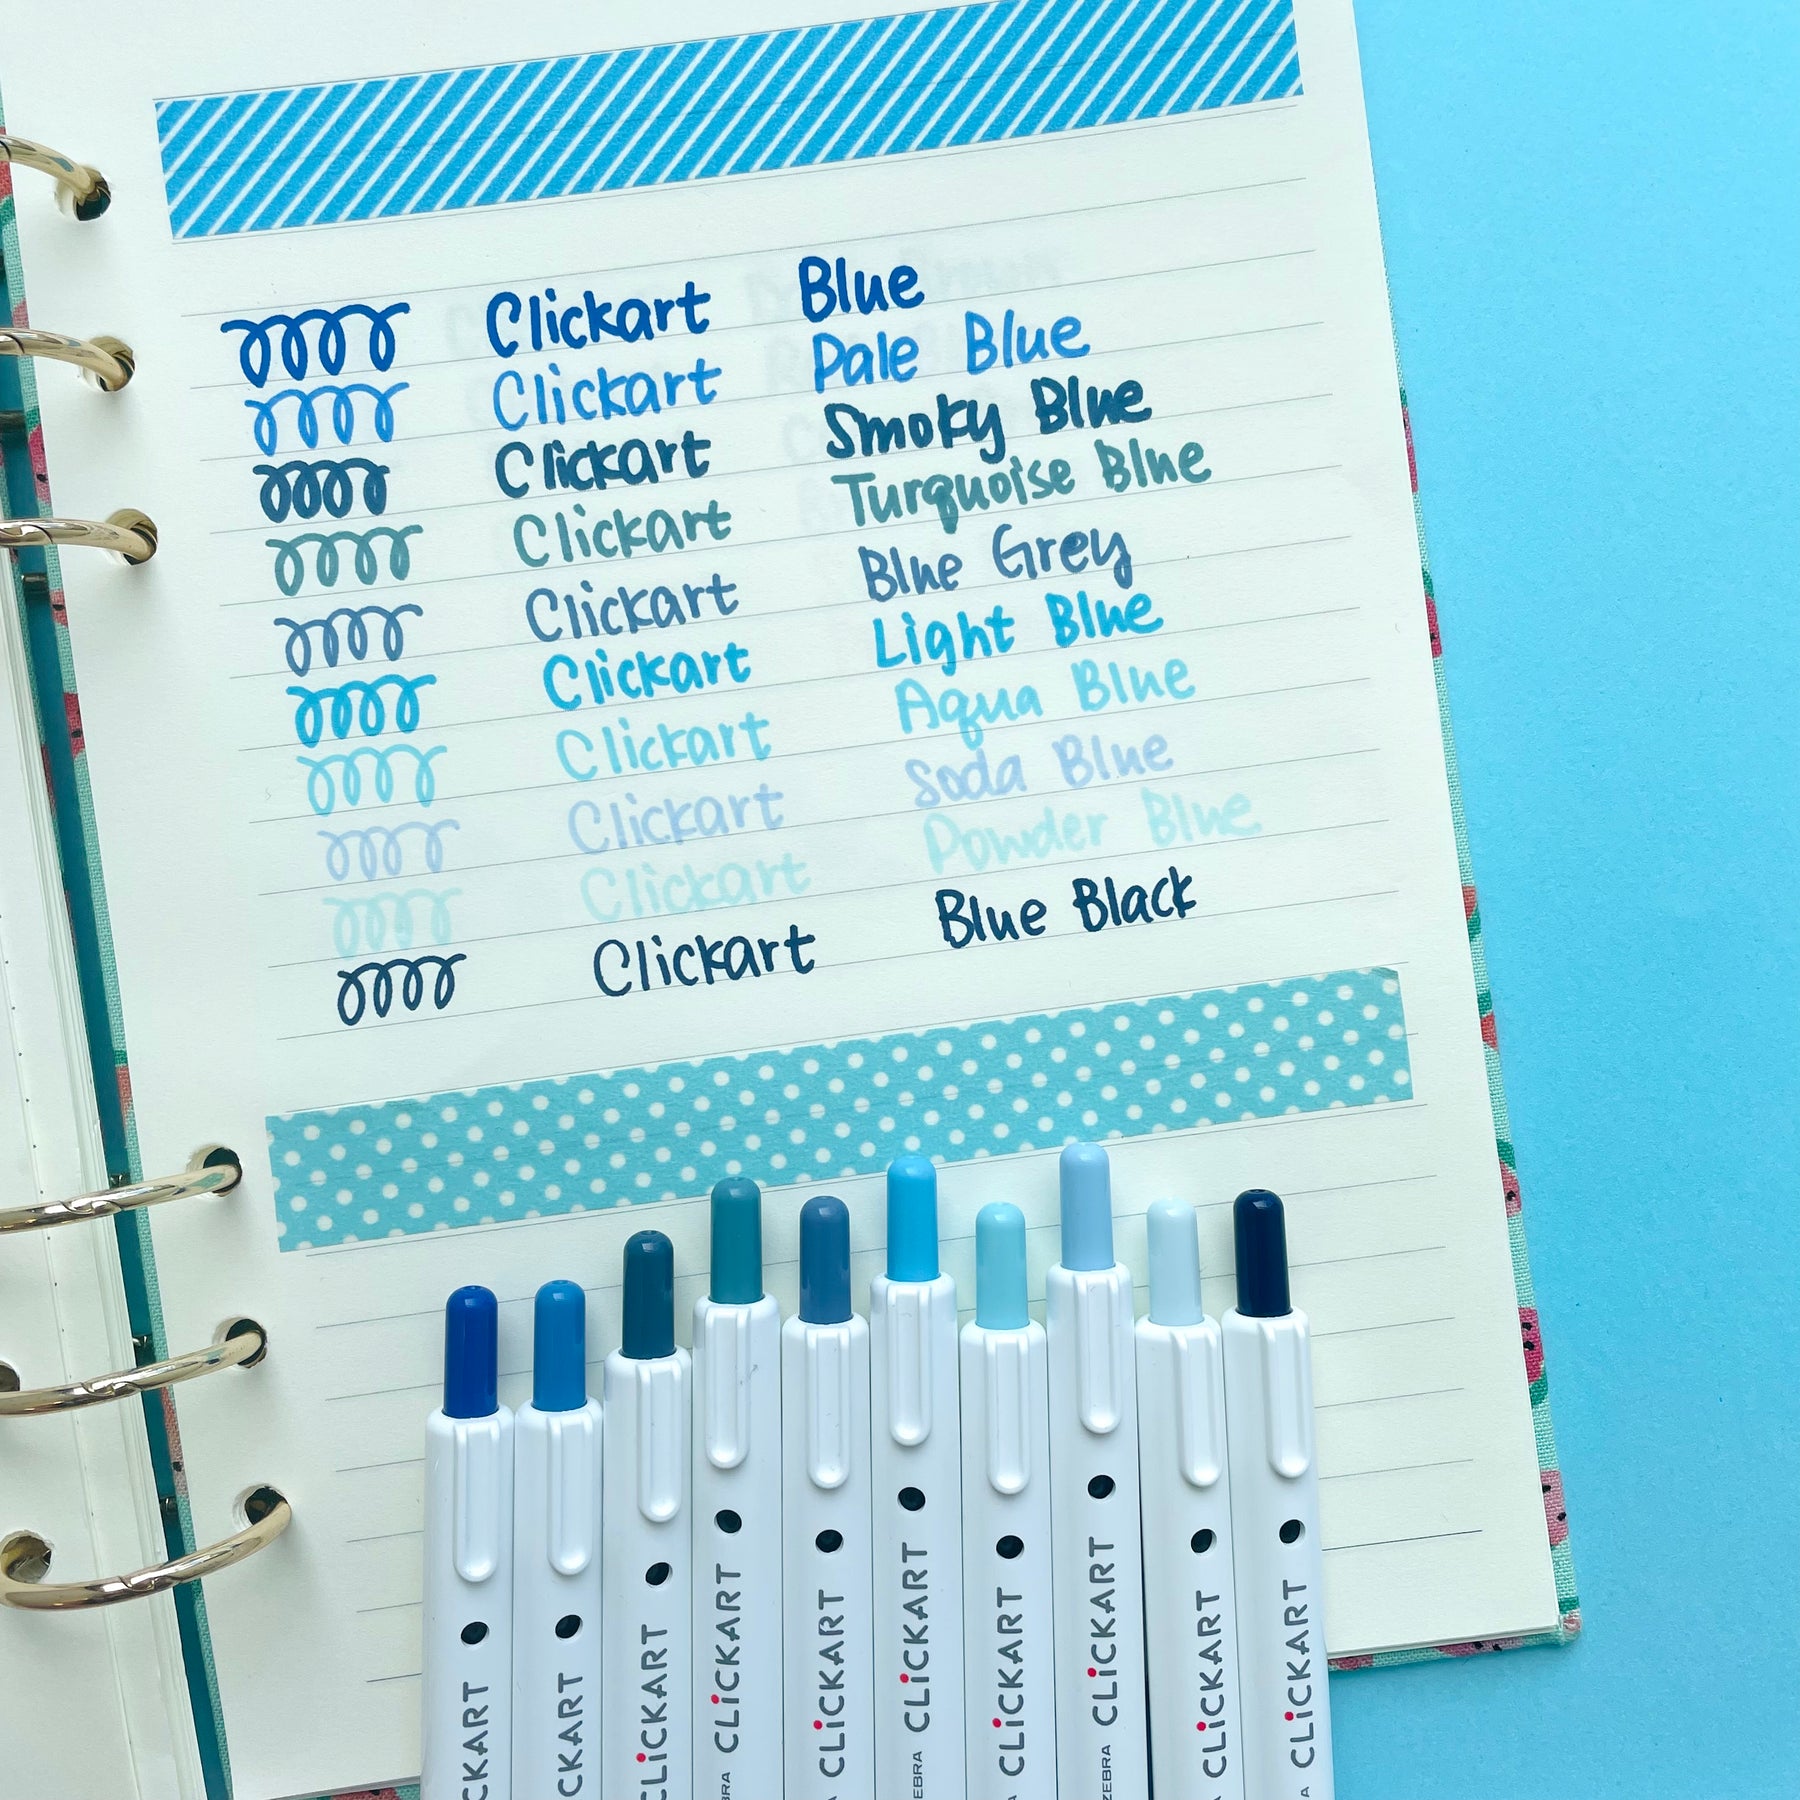 Clickart Blue
Clickart Pale Blue
Clickart Smoky Blue
Clickart Turquoise Blue
Clickart Blue Grey
Clickart Light Blue
Clickart Aqua Blue
Clickart Soda Blue
Clickart Powder Blue
Clickart Blue Black
CKART
CKART
CLiCKART
BRA CLiCKART
A CLiCKART
EBRA CLiCKART
A CLiCKART
ZEBRA CLiCKART
A CLiCKART
A CLiCKART